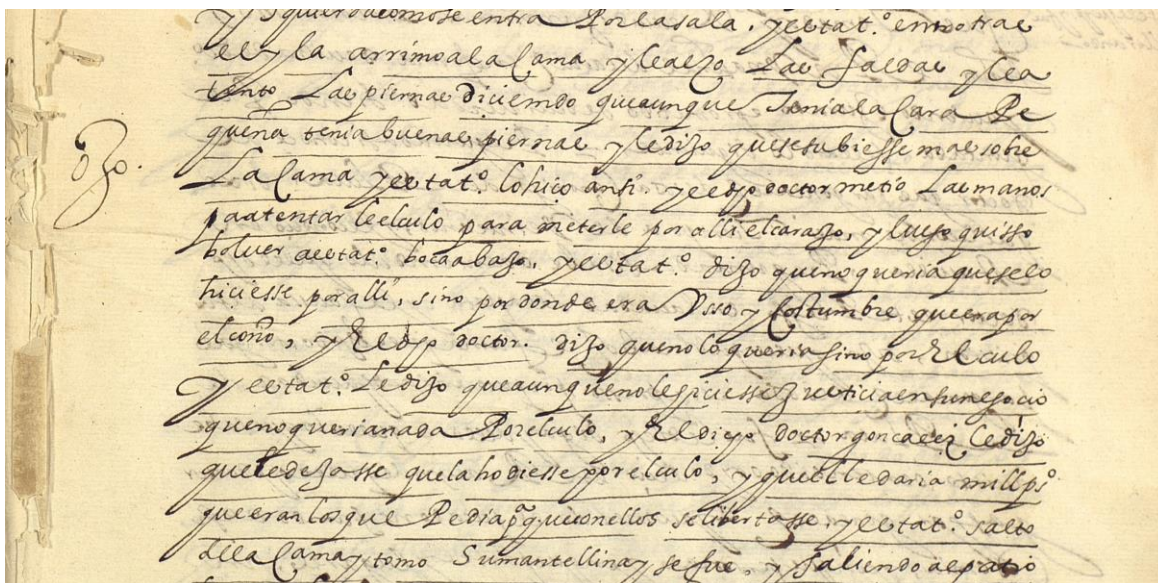 y squierda como se entra Por la sala, y esta tº. entro tras
el y la arrimo a la Cama y le alzo Las faldas y le a
tento Las piernas diciendo que aunque Tenia la Cara Pe
queña tenia buenas piernas y le dijo que se subiesse mas sobre
La Cama y esta tº. lo hiço ansi. y el dho doctor metio Las manos
a atentar le el culo para meterle por alli el carajo, y luego quisso
bolver a esta tº. boca abajo, y esta tº. dijo que no queria que se lo
hiciesse por alli, sino por donde era Vsso y Costumbre que era por
el coño, y El dho doctor. dijo que no lo queria sino por El culo
y esta tº. Le dijo que aunque no le hiciesse Justicia en su negocio
que no queria nada Por el culo, y El dicho doctor gonçalez le dijo
que le dejasse que la hodiesse por el culo, y que el le daria mill pºs
que eran los que Pedia pª que con ellos se libertasse, y esta tº. salto
de la Cama y tomo Su mantellina y se fue, y saliendo al patio
ojo.